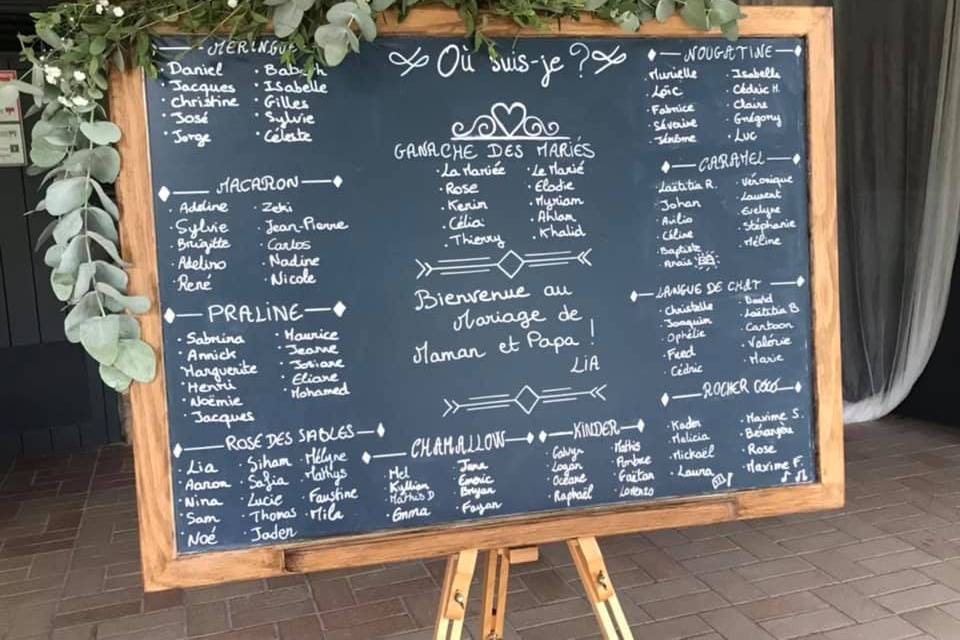 MERINGUE
· Daniel
· Jacques
· Christine
· José
· Jorge
· Isabelle
· Gilles
· Sylvie
· Céleste
MACARON
· Adeline
· Sylvie
· Brigitte
· Adelino
· René
· Zeki
· Jean-Pierre
· Carlos
· Nadine
· Nicole
PRALINE
· Sabrina
· Annick
· Marguerite
· Henri
· Noémie
· Jacques
· Maurice
· Jeanne
· Josiane
· Eliane
· Mohamed
ROSE DES SABLES
· Lia
· Aaron
· Nina
· Sam
· Noé
· Siham
· Safia
· Lucie
· Thomas
· Jaden
· Mélyne
· Mathys
· Faustine
· Mila
Où suis-je ?
GANACHE DES MARIÉS
· La Mariée
· Rose
· Kerim
· Célia
· Thierry
· Le Marié
· Elodie
· Myriam
· Ahlam
· Khalid
Bienvenue au
Mariage de
Maman et Papa !
LIA
CHAMALLOW
· Mel
· Kyllian
· Mathis D
· Emma
· Emeric
· Bryan
KINDER
· Logan
· Océane
· Raphaël
· Mathis
· Ambre
· Gaëtan
· Lorenzo
NOUGATINE
· Murielle
· Loïc
· Fabrice
· Séverine
· Jérôme
· Isabelle
· Cédric H.
· Claire
· Grégory
· Luc
CARAMEL
· Laëtitia R.
· Johan
· Céline
· Baptiste
· Anaïs
· Véronique
· Laurent
· Evelyne
· Stéphanie
· Méline
LANGUE DE CHAT
· Christelle
· Joaquim
· Ophélie
· Fred
· Cédric
· David
· Laëtitia B
· Valérie
· Marie
ROCHER COCO
· Kader
· Malicia
· Mickaël
· Laura
· Maxime S.
· Bérangère
· Rose
· Maxime F.